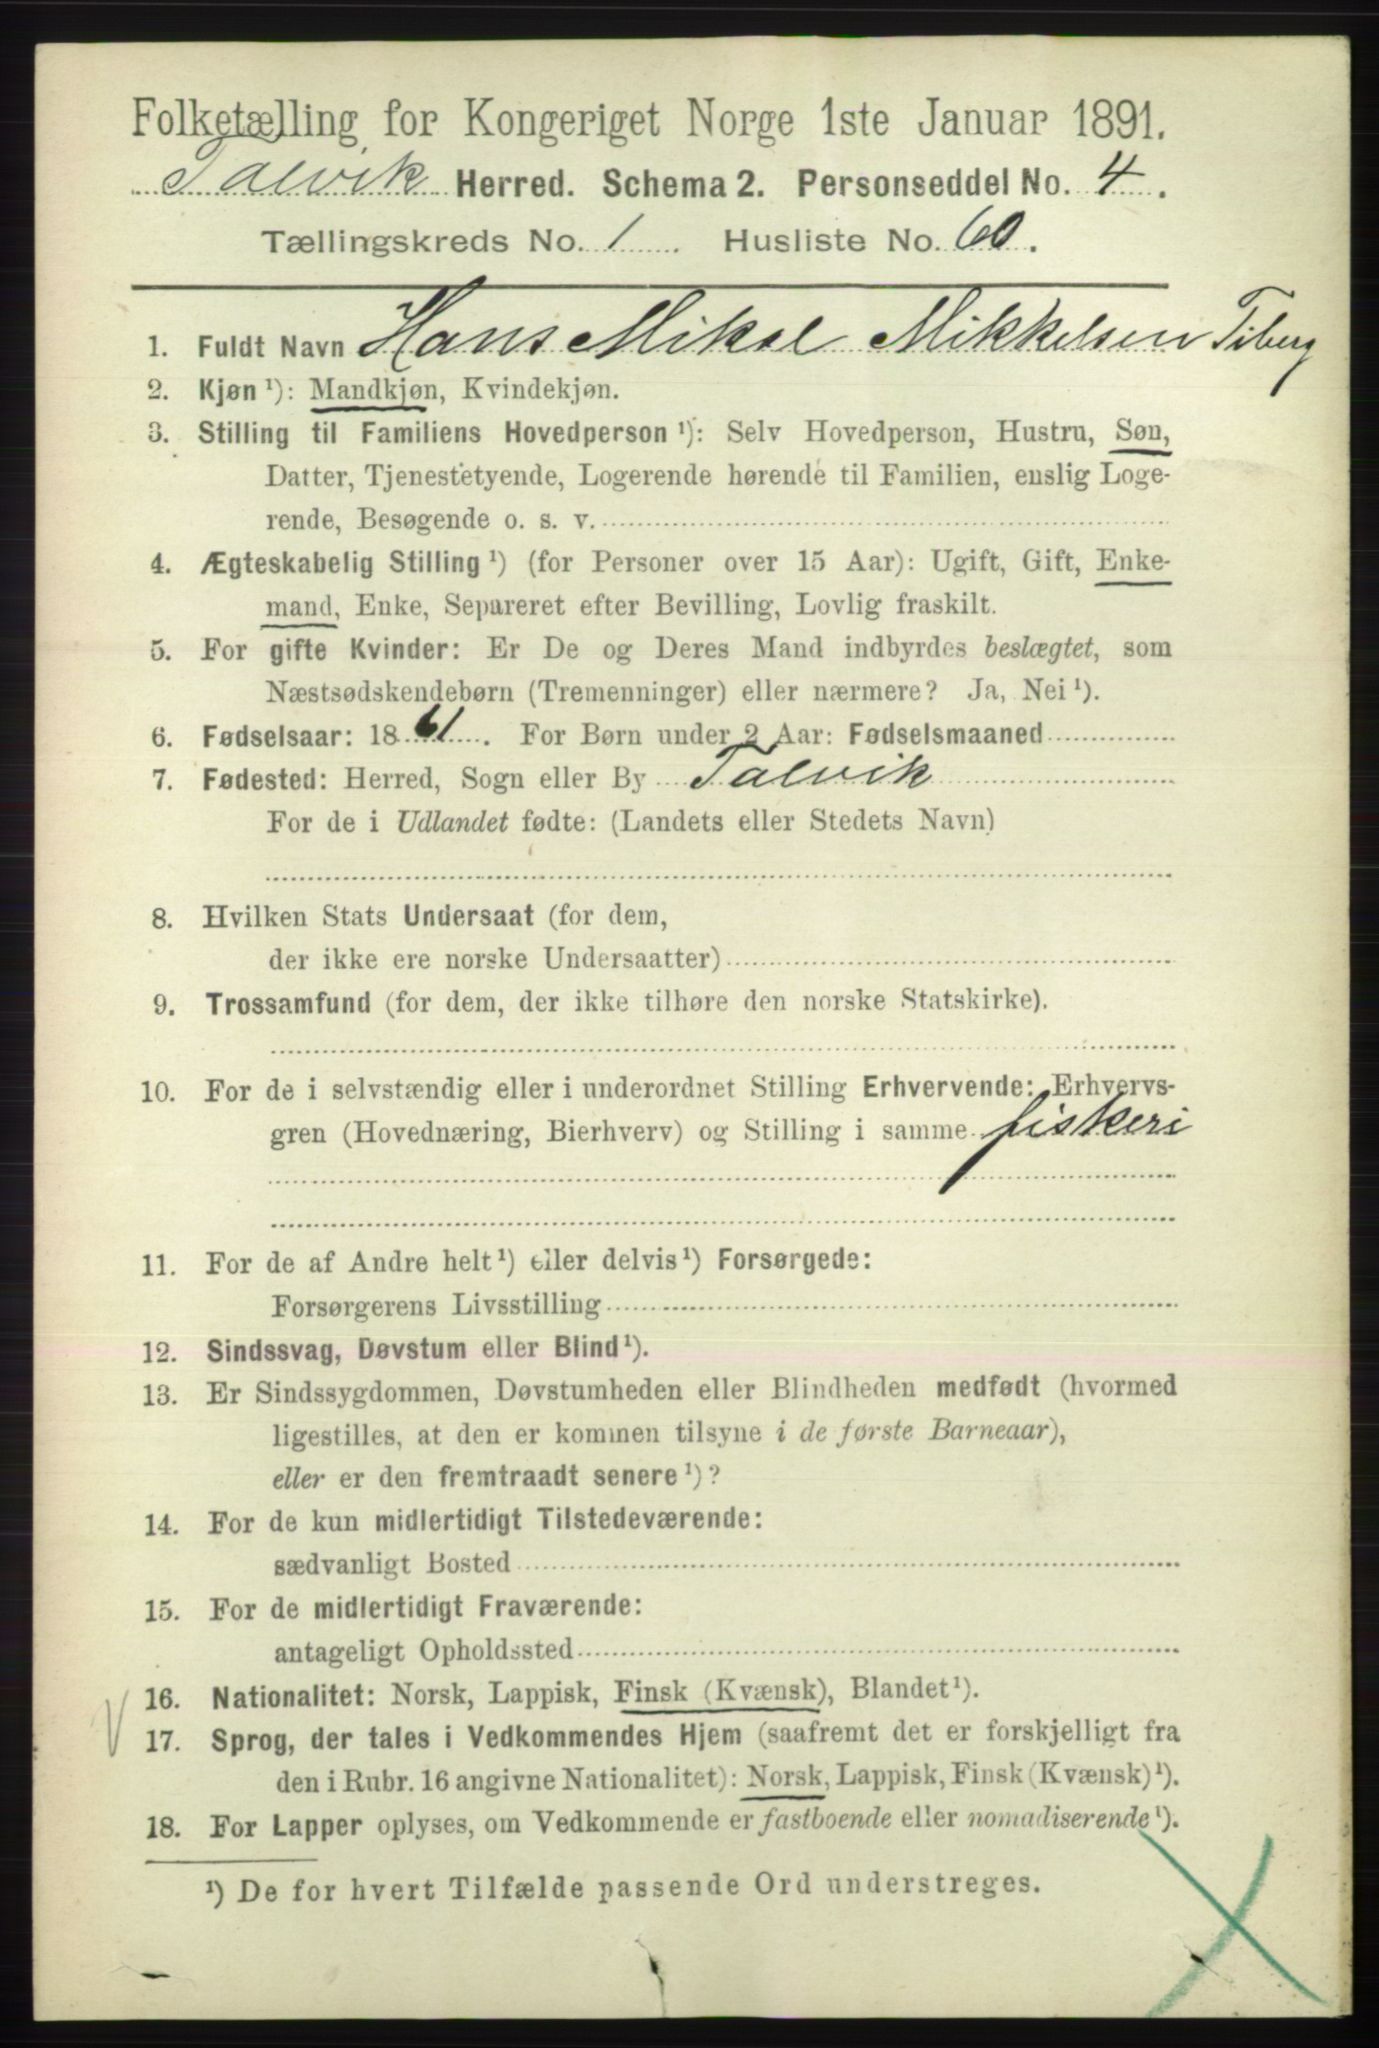 Folketælling for Kongeriget Norge 1ste Januar 1891.
Talvik Herred. Schema 2. Personseddel No. 4.
Tællingskreds No. 1 Husliste No. 60.
1. Fuldt Navn Hans Mikal Mikkelsen Tiberg
2. Kjøn ¹): Mandkjøn, Kvindekjøn.
3. Stilling til Familiens Hovedperson ¹): Selv Hovedperson, Hustru, Søn,
Datter, Tjenestetyende, Logerende hørende til Familien, enslig Loge-
rende, Besøgende o. s. v.
4. Ægteskabelig Stilling ¹) (for Personer over 15 Aar): Ugift, Gift, Enke-
mand, Enke, Separeret efter Bevilling, Lovlig fraskilt.
5. For gifte Kvinder: Er De og Deres Mand indbyrdes beslægtet, som
Næstsødskendebørn (Tremenninger) eller nærmere? Ja, Nei ¹).
6. Fødselsaar: 1861. For Børn under 2 Aar: Fødselsmaaned
7. Fødested: Herred, Sogn eller By Talvik
For de i Udlandet fødte: (Landets eller Stedets Navn)
8. Hvilken Stats Undersaat (for dem,
der ikke ere norske Undersaatter)
9. Trossamfund (for dem, der ikke tilhøre den norske Statskirke).
10. For de i selvstændig eller i underordnet Stilling Erhvervende: Erhvervs-
gren (Hovednæring, Bierhverv) og Stilling i samme fiskeri
11. For de af Andre helt ¹) eller delvis ¹) Forsørgede:
Forsørgerens Livsstilling
12. Sindssvag, Døvstum eller Blind ¹).
13. Er Sindssygdommen, Døvstumheden eller Blindheden medfødt (hvormed
ligestilles, at den er kommen tilsyne i de første Barneaar),
eller er den fremtraadt senere ¹)?
14. For de kun midlertidigt Tilstedeværende:
sædvanligt Bosted
15. For de midlertidigt Fraværende:
antageligt Opholdssted
16. Nationalitet: Norsk, Lappisk, Finsk (Kvænsk), Blandet ¹).
17. Sprog, der tales i Vedkommendes Hjem (saafremt det er forskjelligt fra
den i Rubr. 16 angivne Nationalitet): Norsk, Lappisk, Finsk (Kvænsk) ¹).
18. For Lapper oplyses, om Vedkommende er fastboende eller nomadiserende ¹).
¹) De for hvert Tilfælde passende Ord understreges.